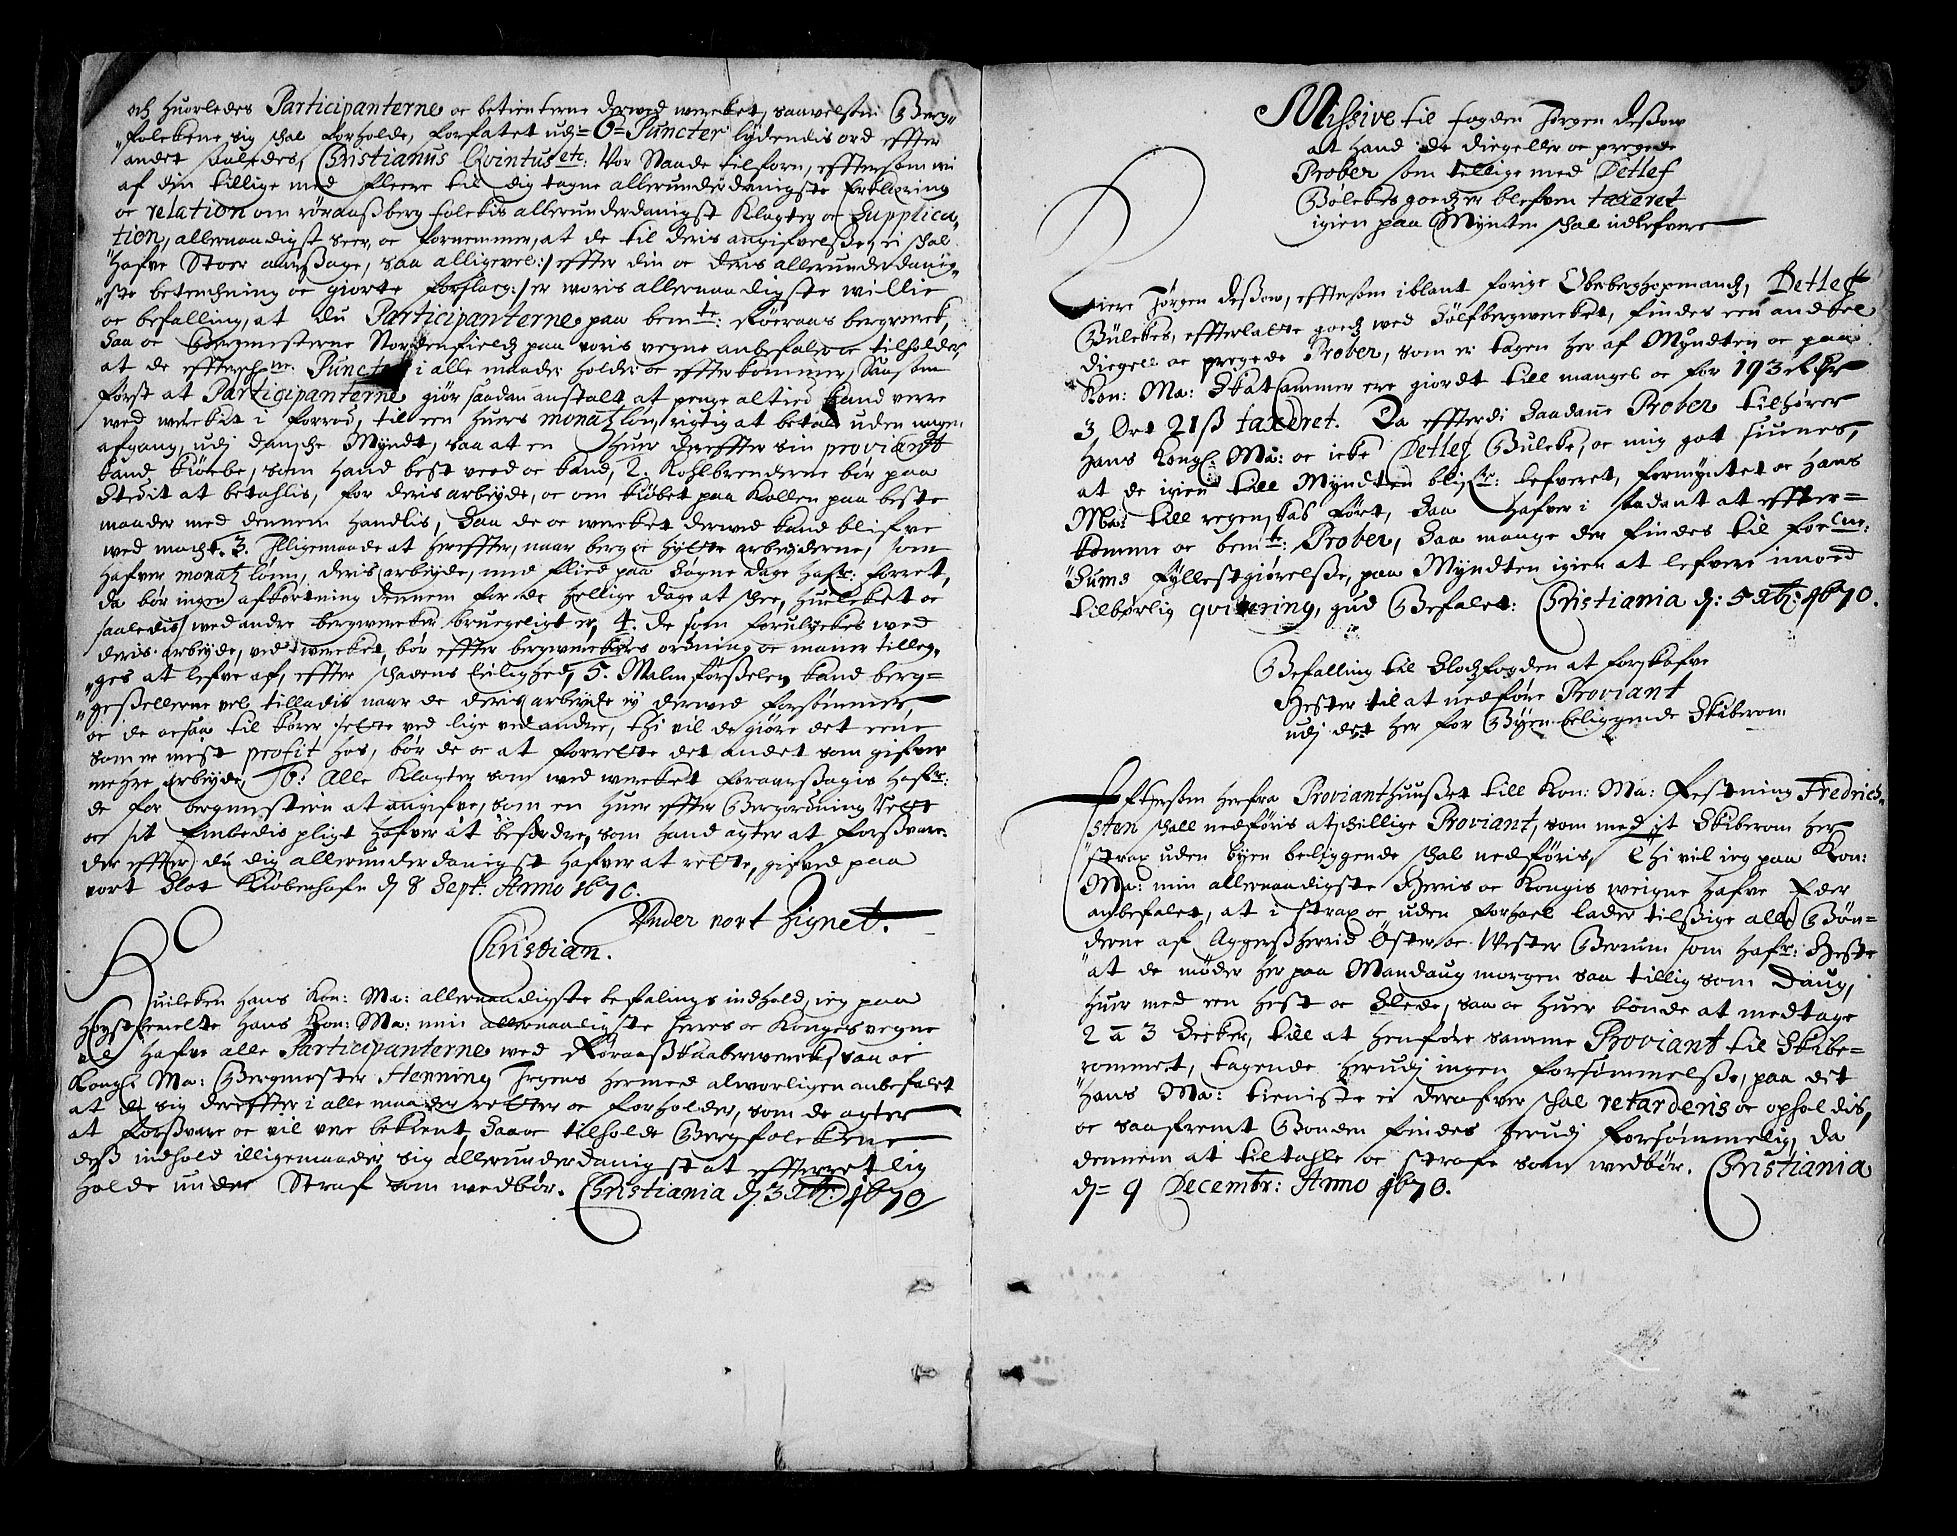 och huorledes Participanterne oc betienterne derwed wercket, saavelsom Berg-
folckene sig schal forholde, forfatet udj 6 Puncter lydendis ord effter
andet saaledes, Christianus Qvintus etc: Vor Naade tilforn, efftersom wi
af din tillige med fleere til dig tagne allerunderdanigste Erklering
oc relation om röraassberg folckis allerunderdanigst Klagter oc Supplica-
tion, allernaadigst seer, oc fornemmer, at de til deris angifvelsse ei schal
hafve Stoer aarssage, saa alligevel:/ effter din oc deris allerunderdanig-
ste betenchning oc giorte forslaeg:/ er woris allernaadigste willie
oc befalling, at du Participanterne paa bemte: Röeraas bergwerck,
saa oc Bergmesterne Nordenfieldz paa voris vegne anbefaler oc tilholder,
at de effterschne: Puncter i alle maader holder oc effterkommer, Saasom
först at Participanterne giör saadan anstalt at penge altied kand verre
wed wercket i forraad, til een huers monatz lön, rigtig at betale uden nogen
afgang, udj dansche Myndt, saa at en Huer dereffter sin proviant
kand kiöebe, som hand best veed oc kand, 2. Kohlbrenderne bör paa
Stedit at betahlis, for deris arbeyde, oc om kiöbet paa Kollen paa beste
maader med dennem handlis, saa de oc wercket derwed kand blifve
wed macht. 3. Illigemaade at hereffter, naar berg oc hytte arbeyderne, som
hafver monatz lönn, deris arbeyde, med flied paa Sögne dage hafr: forret,
da bör ingen afkortning dennem for de hellige dage at schee, huilcket oc
saaledis wed andre bergwercker brugeligt er, 4. de som forulyckes wed
deris arbeyde, ved wercket, bör effter bergwerckers ordning oc maneer tilleg-
ges at lefve af, effter schadens leilighed, 5. Malm försselen kand berg-
gesellerne vel tilladis naar de deris arbeyde ej derwed forsömmer,
oc de ocsaa til körer selve ved lige ved andre, thi vil de giöre det eene
som er mest profit hos, bör de oc at forrette det andet som gifver
mehre arbeyde, 6. Alle Klagter som wed wercket foraarssagis hafr:
de for bergmestern at angifve, som en huer effter Bergordning Rett
oc sit Embedis pligt hafver at befordre, som hand agter at forsvare.
der effter du dig allerunderdanigst hafver at rette, gifved paa
vort Slot Kiöbenhafn d: 8 Sept: Anno 1670.
Under vort Zignet.
Christian.
Huilcken Hans Kon: Ma: allernaadigste befalings indhold, ieg paa
Höystbemelte Hans Kon: Ma: min allernaadigste Herres oc Konges vegne
vil hafve alle Participanterne wed Röraass Kaaberwerck, saa oc
Kongl: Ma: Bergmester Henning Irgens hermed alworligen anbefalet
at de sig dereffter i alle maader retter oc forholder, som de agter
at forssvare oc vil vere bekient, saa oc tilholde Bergfolckene
dess indhold illigemaader sig allerunderdanigst at effterretlig
holde under Straf som wedbör. Christiania d: 3 Xbr: 1670
Missive til fogden Jörgen Dessow
at hand de diegeller oc pregede
Prober som tillige med Detlef
Bölckes goedz er blefven taxeret
igien paa Mynten schal indlefvere
Kiere Jörgen Dessow, efftersom iblant forige Oberberghopmandz, Detlef
Bülckes, effterlatte goedz wed Sölfbergwercket, findes een andeel
diegell oc pregede Prober, som er tagen her af Myndten oc paa
Kon: Ma: Skat Cammer ere giordt till mangel oc for 193 Rdr
3 Ort 21 ß taxeret. Da effterdi saadann Prober tilhörer
Hans Kongl: Ma: oc icke Detlef Bulcke, oc mig got siunes,
at de igien till Myndten blifr: lefveret, formyntet oc Hans
Ma: till regenskab fört, Saa hafver i sadant at effter-
komme oc bemte: Prober, saa mange der findes til forne:
Sums fyllestgiörelsse, paa Myndten igien at lefvere imoed
tilbörlig qvitering, gud Befalet: Christiania d: 5 Xbr: 1670.
Befalling til Slotzfogden at forskafve
Hester til at nedföre Proviant
udj det her for Byen beliggende Skiberom
Efftersom herfra Provianthuusset till Kon: Ma: Festning Fredrich-
sten schall nedföris atschillige Proviant, som med it Skiberom her
strax uden byen beliggende schal nedföris, Thi vil ieg paa Kon:
Ma: min allernaadigste Herris oc Kongis weigne hafve Eder
anbefalet, at i strax oc uden forhael lader tilssige alle Bön-
derne af Aggerssherrid Öster oc Wester Berrum som hafr: Heste
at de möder her paa Mandaug morgen saa tillig som Daug,
huer med een hest oc Slede, saa oc huer bonde at medtage
2 a 3 Secker, till at henföre samme Proviant til Skibe-
rommet, tagende herudj ingen forsömmelsse, paa det
Hans Ma: tieniste ei derofver schal retarderis oc opholdis,
oc saafremt Bonden findes herudj forsömmelig, da
dennem at tiltahle oc straffe som wedbör. Christiania
d: 9 Decembr: Anno 1670.